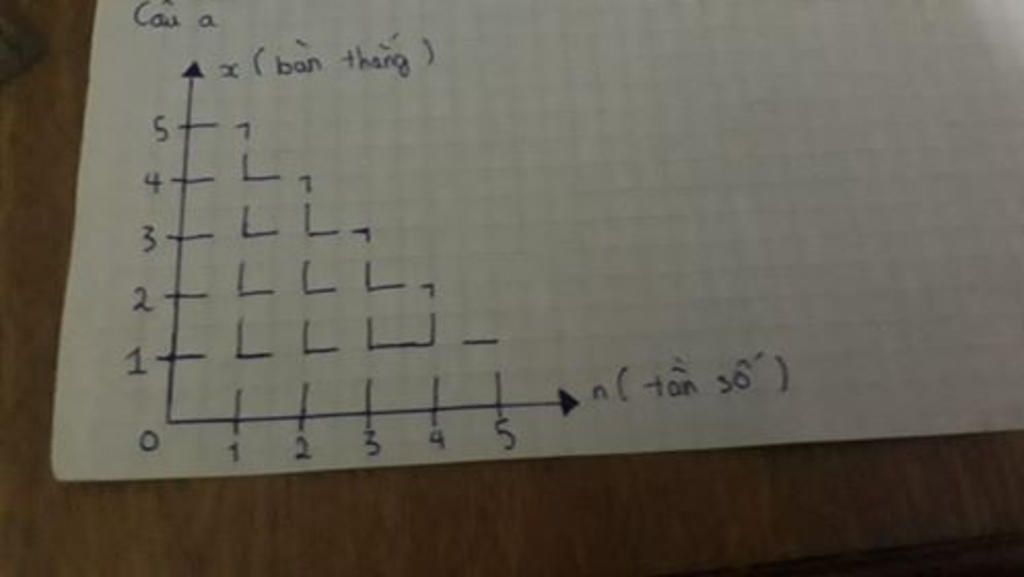 Câu a
x (bàn thắng)
5
4
3
2
1
0
1 2 3 4 5
n (tần số)